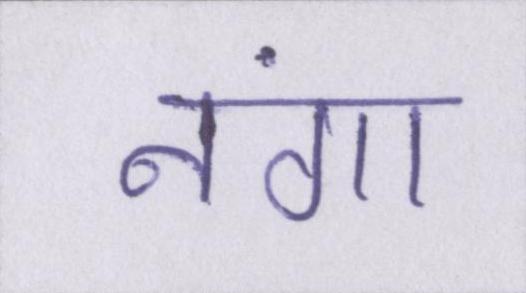 नंगा